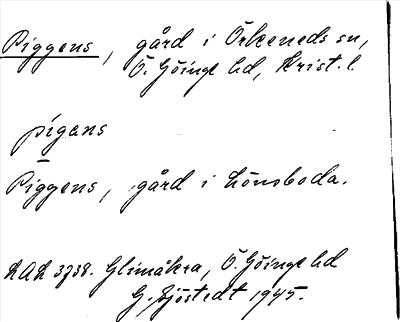 Piggens, gård i Örkeneds sn,
Ö. Göinge hd, Krist. l.
pigens
Piggens, gård i Lönsboda.
LAL 3738. Glimåkra, Ö. Göinge hd
G. Sjöstedt 1945.